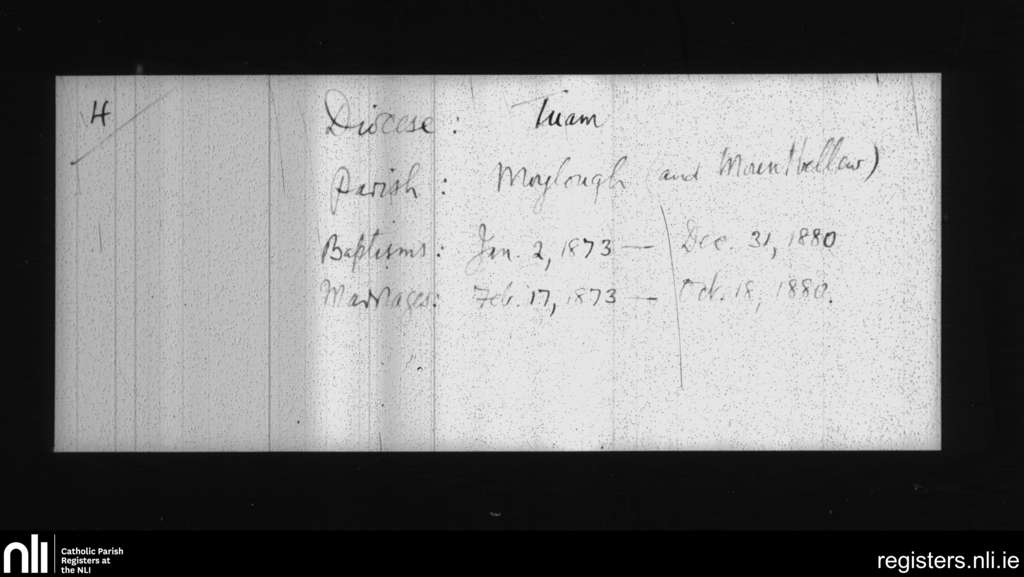 4
Diocese: Tuam
Parish: Moylough (and Mountbellew)
Baptisms: Jan. 2, 1873 — Dec. 31, 1880
Marriages: Feb. 17, 1873 — Oct. 18, 1880.
nli
Catholic Parish
Registers at
the NLI
registers.nli.ie